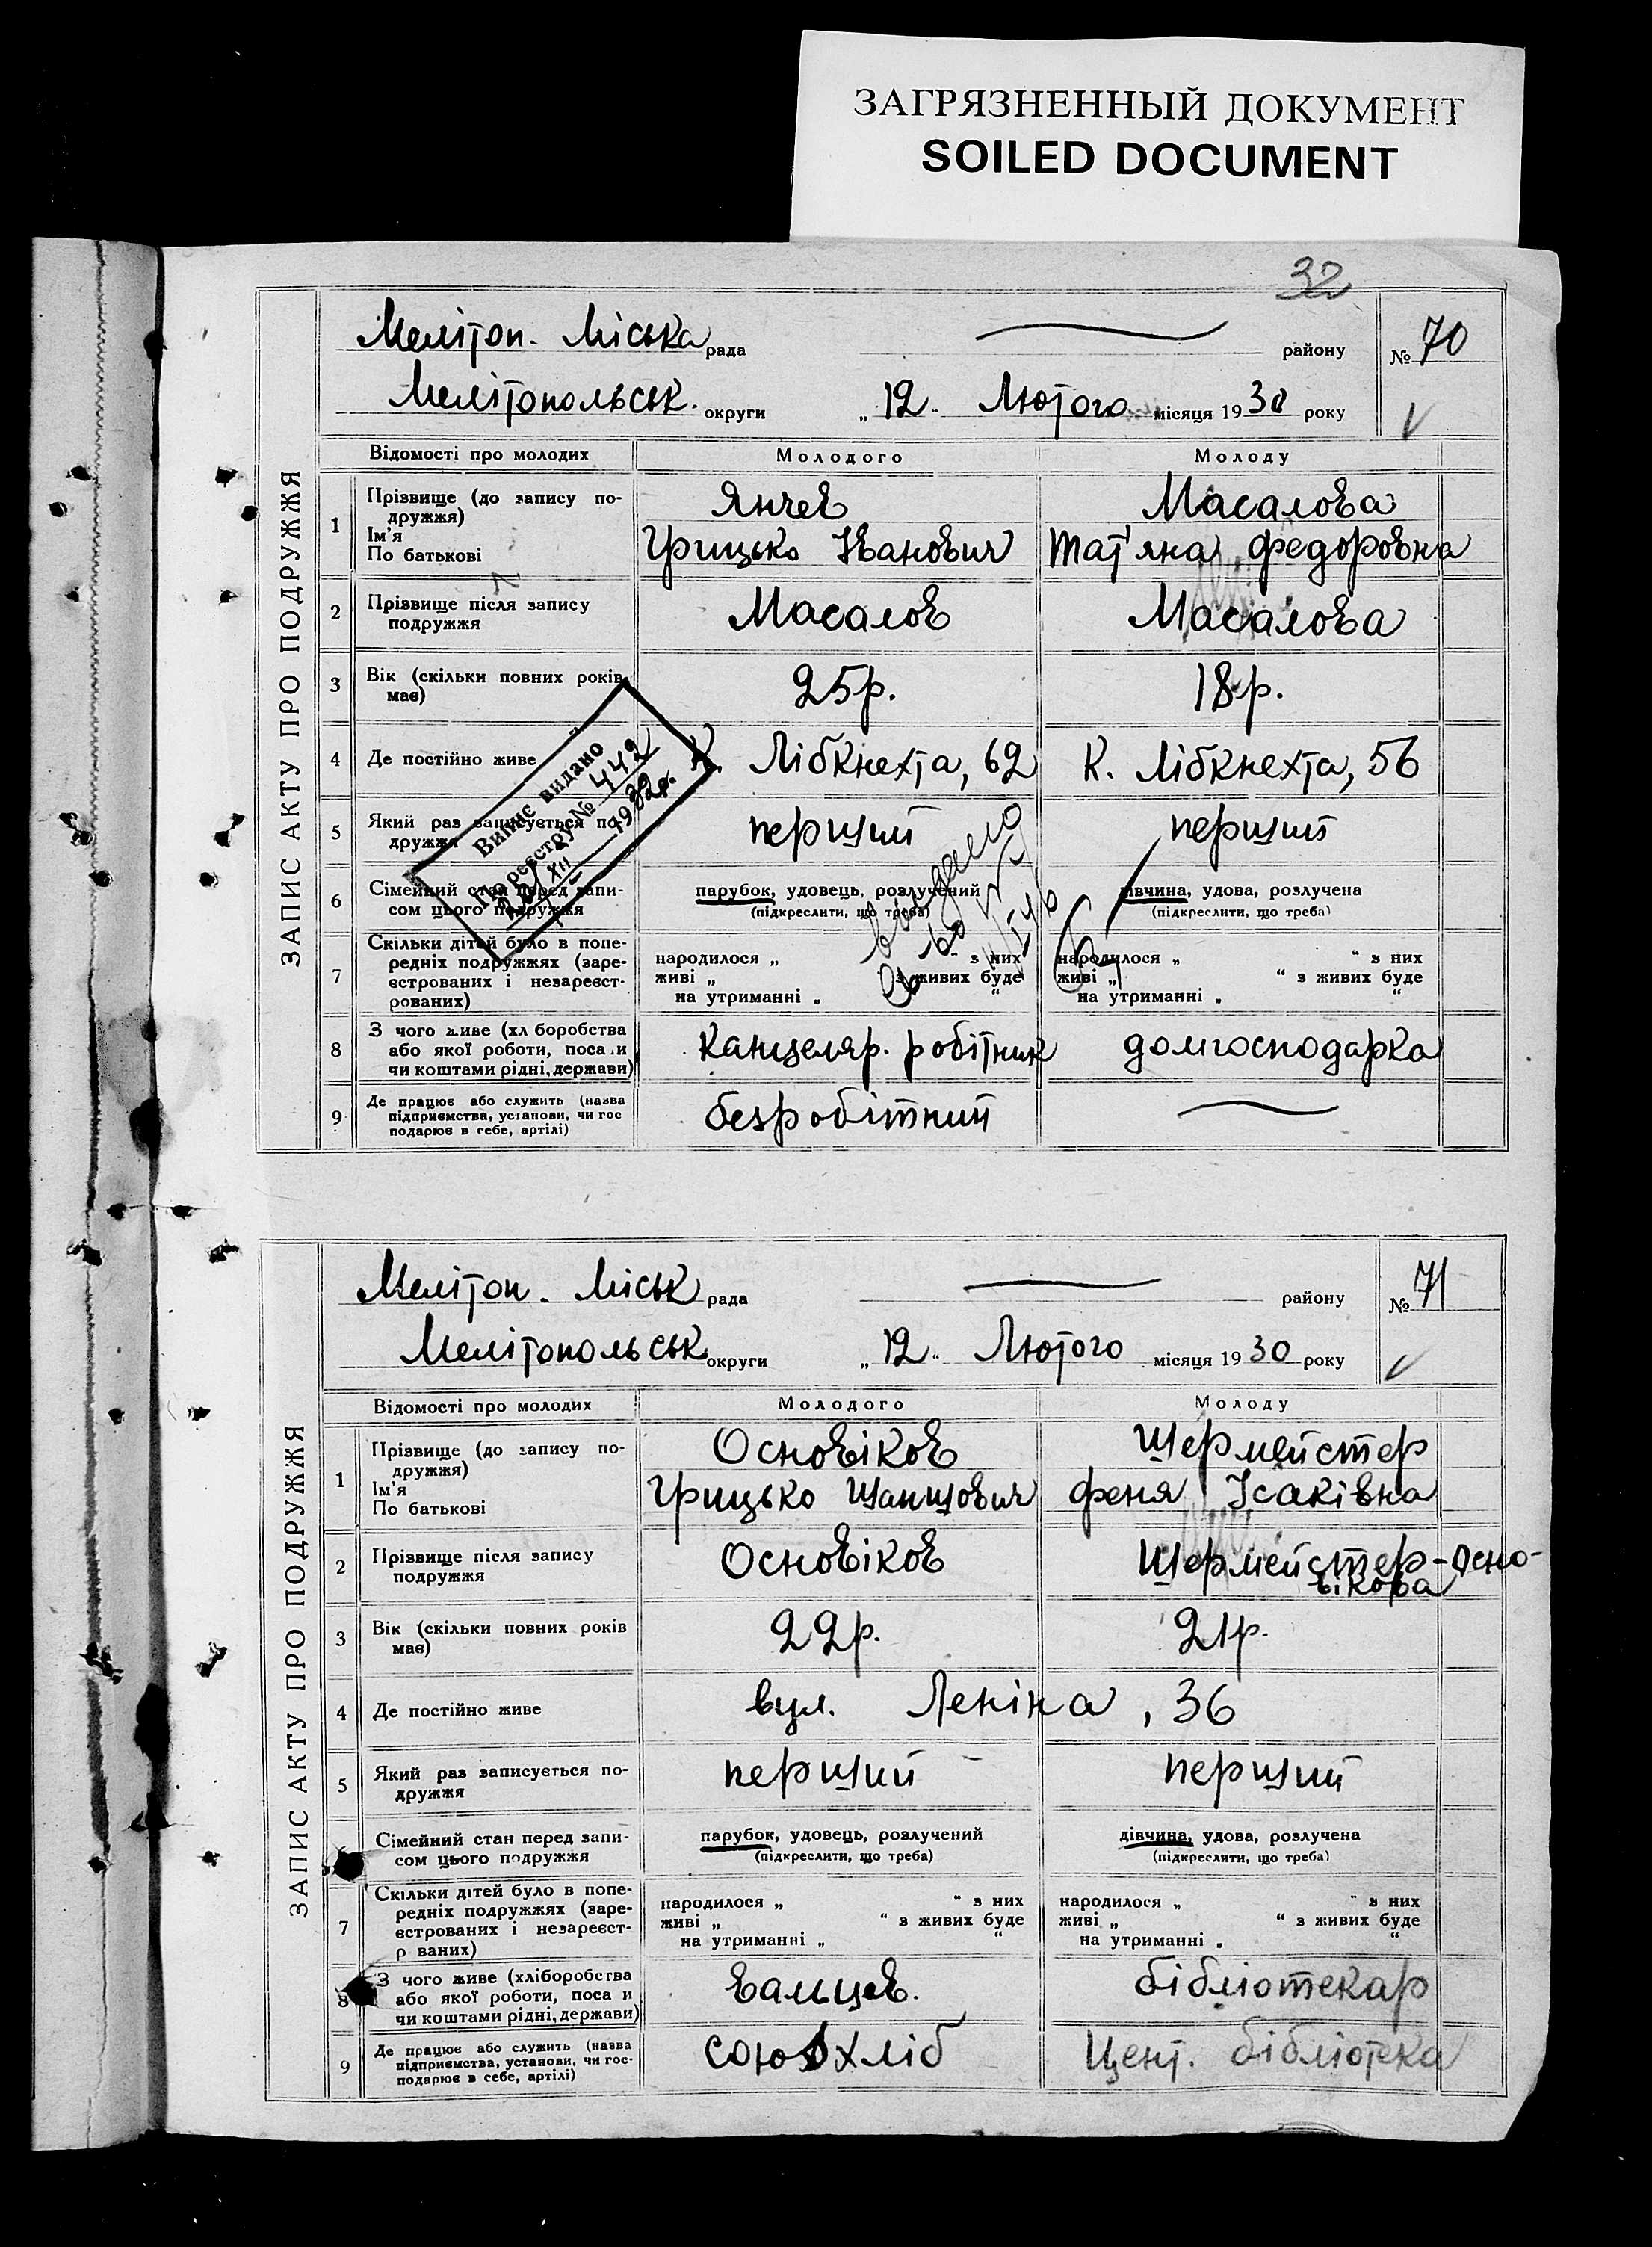 ЗАГРЯЗНЕННЫЙ ДОКУМЕНТ
SOILED DOCUMENT
32
ЗАПИС АКТУ ПРО ПОДРУЖЖЯ
Мелітоп. Міська рада району № 70
Мелітопольськ. округи „ 12 " Лютого місяця 1930 року
Відомості про молодих Молодого Молоду
1 Прізвище (до запису по-
дружжя)
Ім'я
По батькові
Янчев Масалова
Грицько Іванович Тат'яна Федоровна
2 Прізвище після запису
подружжя
Масалов Масалова
3 Вік (скільки повних років
має)
25 р. 18 р.
4 Де постійно живе К Лібкнехта, 62 К. Лібкнехта, 56
5 Який раз записується по-
дружжя
перший перший
Випис видано
По реєстру № 442
XII 1932 р.
6 Сімейний стан перед запи-
сом цього подружжя
парубок, удовець, розлучений дівчина, удова, розлучена
(підкреслити, що треба) (підкреслити, що треба)
видано
7 Скільки дітей було в попе-
редніх подружжях (заре-
єстрованих і незареєст-
рованих)
народилося „ " з них народилося „ " з них
живі „ " з живих буде живі „ " з живих буде
на утриманні „ " на утриманні „ "
8 З чого живе (хл боробства
або якої роботи, посади
чи коштами рідні, держави)
Канцеляр. робітник домгосподарка
9 Де працює або служить (назва
підприємства, установи, чи гос
подарює в себе, артілі)
безробітний
ЗАПИС АКТУ ПРО ПОДРУЖЖЯ
Мелітоп. Міськ рада району № 71
Мелітопольськ округи „ 12 " Лютого місяця 1930 року
Відомості про молодих Молодого Молоду
1 Прізвище (до запису по-
дружжя)
Ім'я
По батькові
Основіков Шермейстер
Грицько Шапшович Феня Ісаківна
2 Прізвище після запису
подружжя
Основіков Шермейстер-Осно-
вікова
3 Вік (скільки повних років
має)
22 р. 21 р.
4 Де постійно живе вул. Леніна, 36
5 Який раз записується по-
дружжя
перший перший
6 Сімейний стан перед запи-
сом цього подружжя
парубок, удовець, розлучений дівчина, удова, розлучена
(підкреслити, що треба) (підкреслити, що треба)
7 Скільки дітей було в попе-
редніх подружжях (заре-
єстрованих і незареєст-
р ваних)
народилося „ " з них народилося „ " з них
живі „ " з живих буде живі „ " з живих буде
на утриманні „ " на утриманні „ "
8 З чого живе (хліборобства
або якої роботи, поса и
чи коштами рідні, держави)
вальцев. бібліотекар
9 Де працює або служить (назва
підприємства, установи, чи гос-
подарює в себе, артілі)
союзхліб Цент. бібліотека